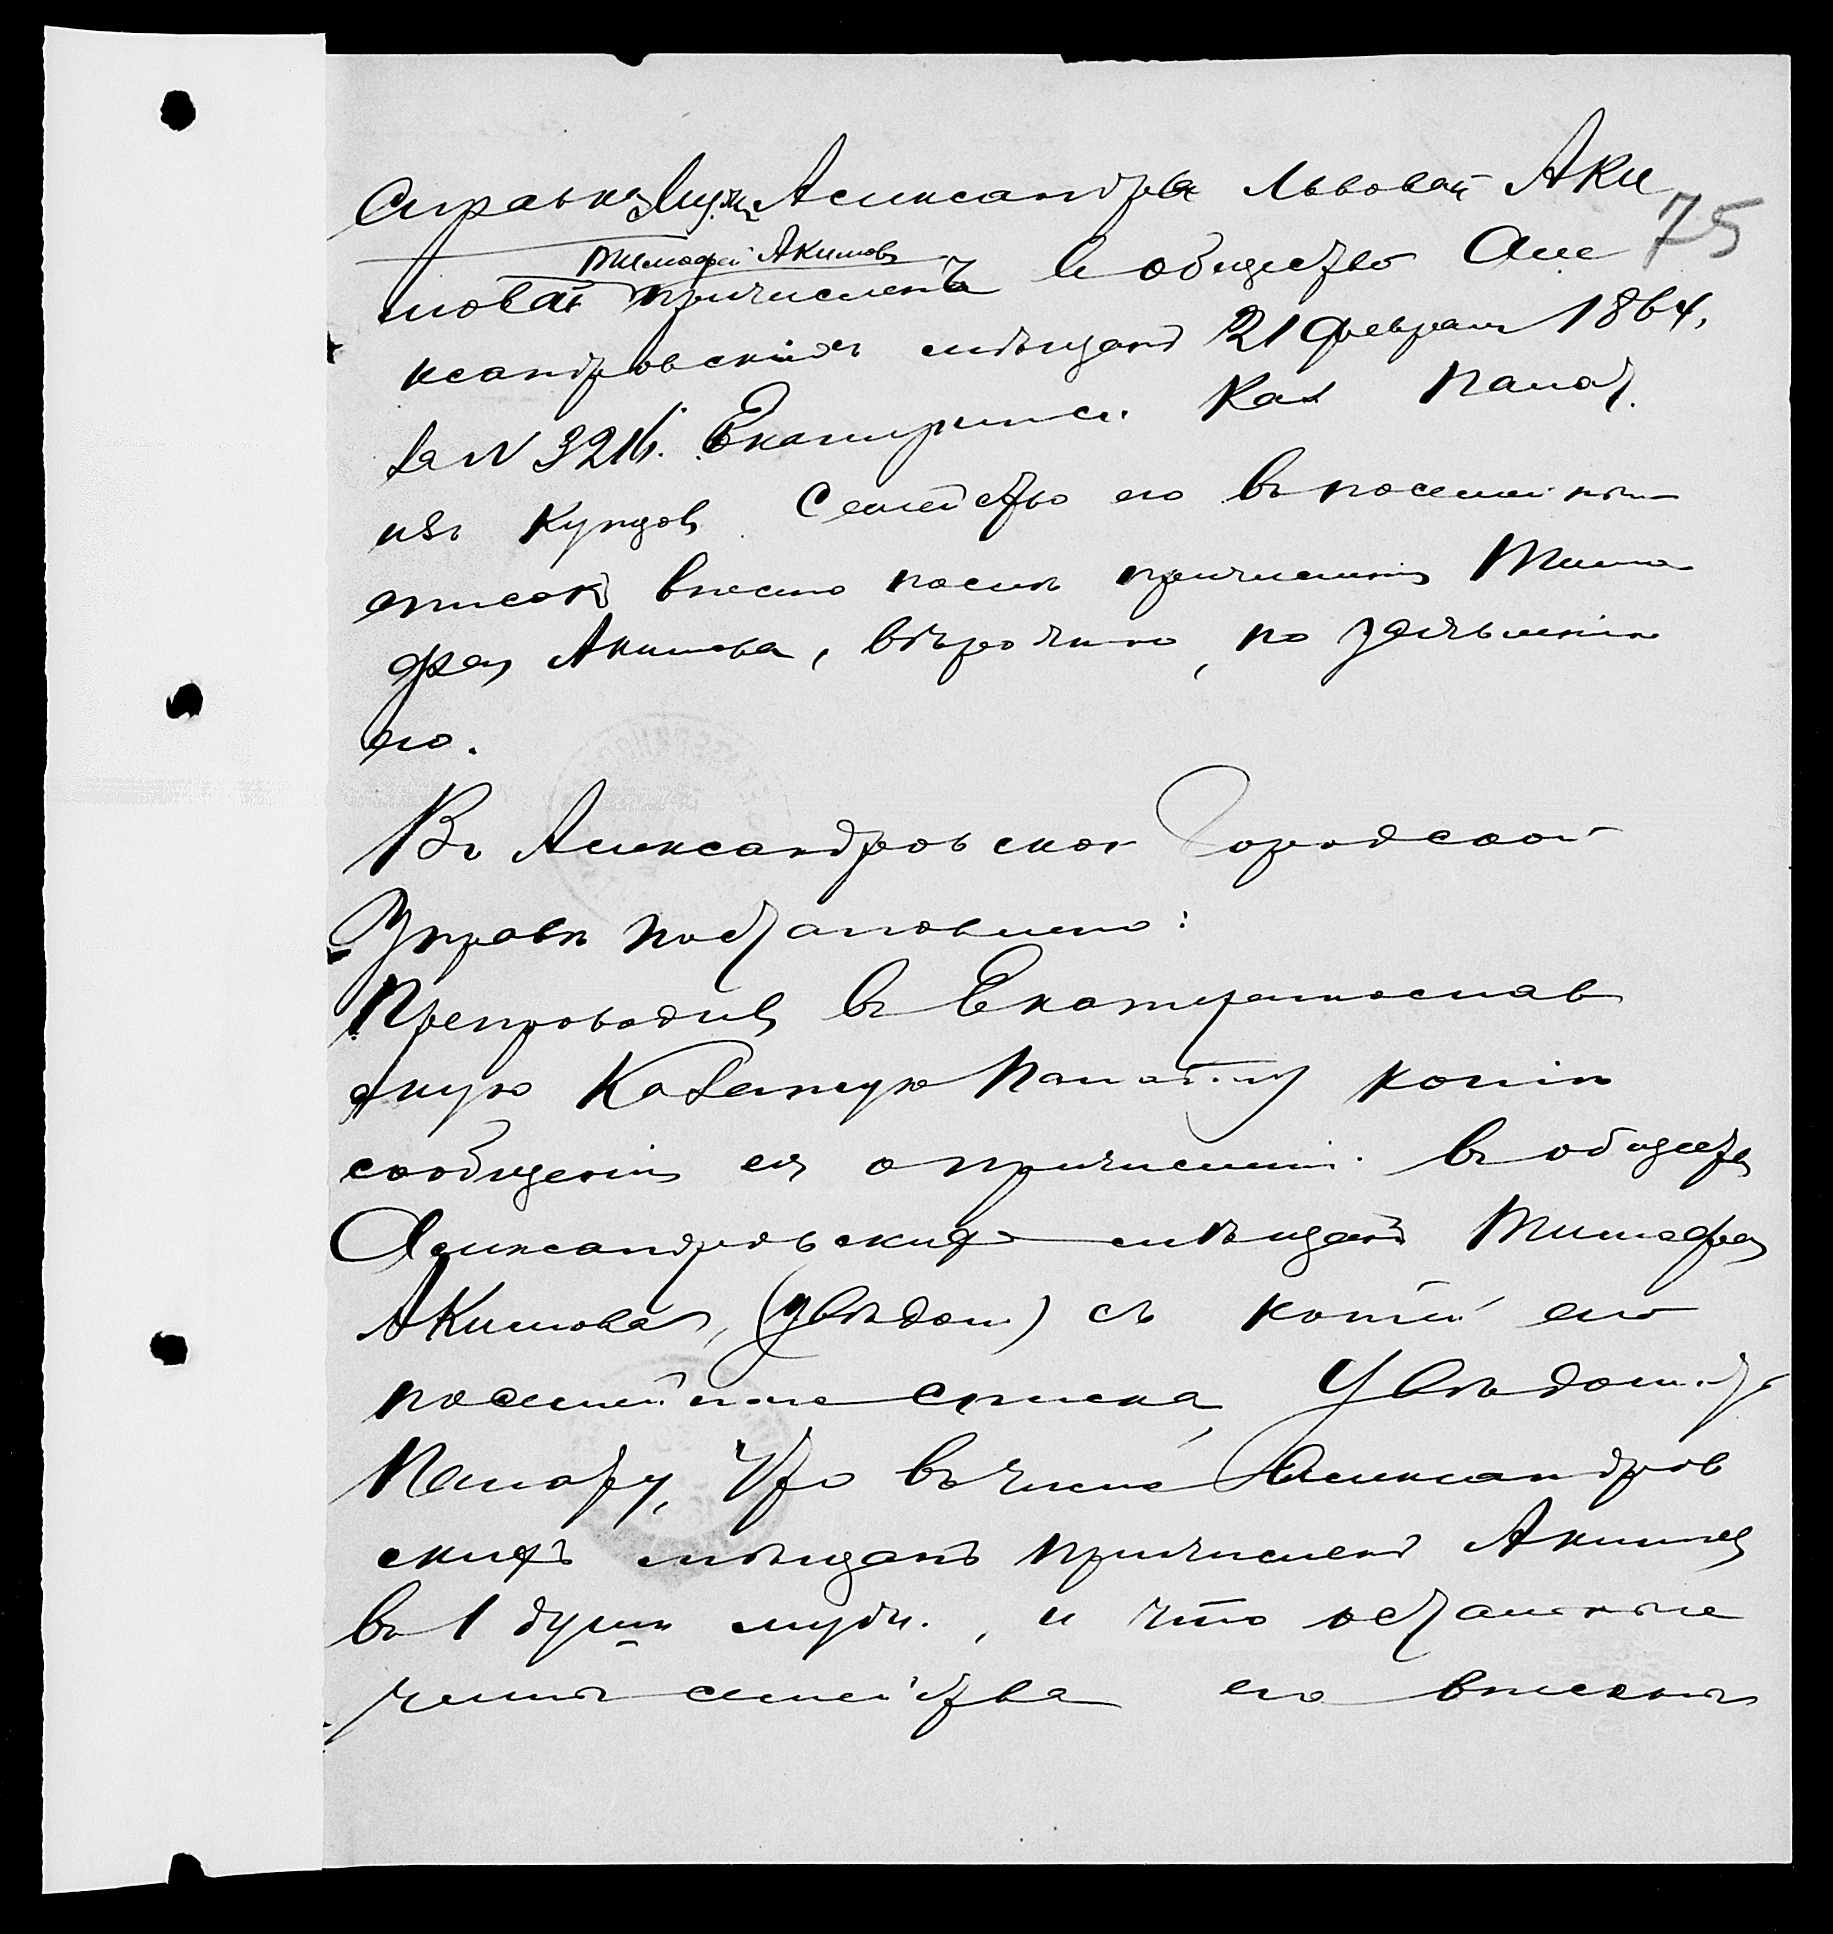 Справка. Мужъ Александры Львовой Аки
75
Тимофей Акимовъ
мовой причисленъ въ общество Але
ксандровскихъ мѣщанъ 21 февраля 1864,
за N 3216. Екатеринос. Каз Палат.
изъ Купцовъ Семейство его въ посемейный
списокъ внесено послѣ причисленія Тимо
фея Акимова, вѣроятно, по заявленію
его.
Въ Александровской Городской
Управѣ постановлено:
Препроводивъ въ Екатеринослав
скую Казенную Палату копію
сообщенія ея о причисленіи въ общество
Александровскихъ мѣщанъ Тимофея
Акимова, (увѣдом) съ копіей его
посемейнаго списка, увѣдомить
Палату, что въ число Александров
скихъ мѣщанъ причисленъ Акимовъ
въ 1 душѣ муж., и что остальные
члены семейства его внесены